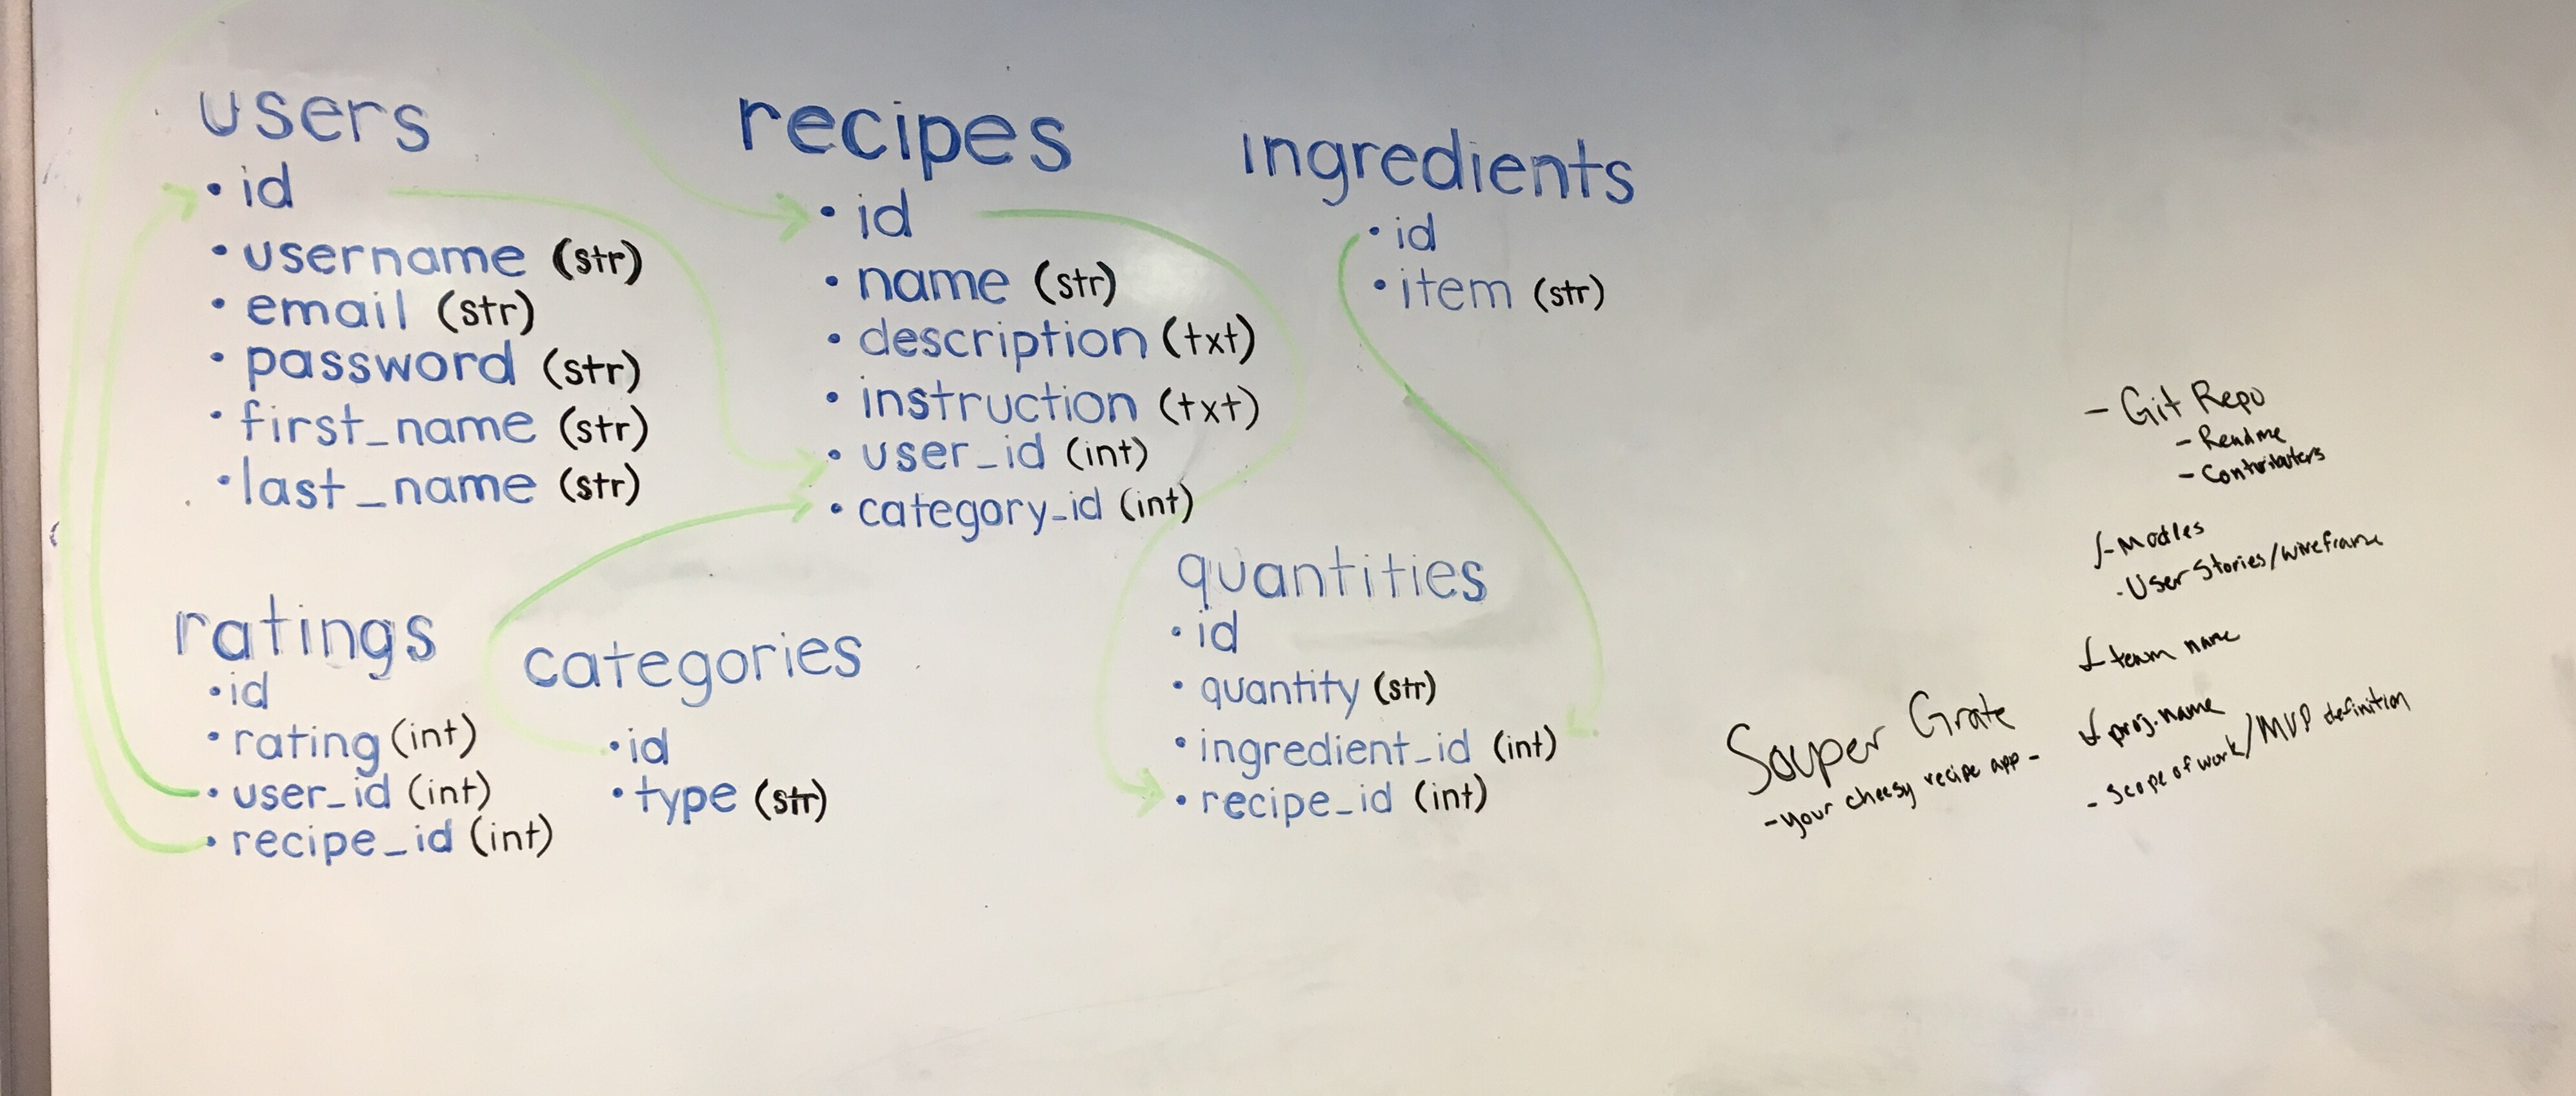 users
• id
• username (str)
• email (str)
• password (str)
• first_name (str)
• last_name (str)
recipes
• id
• name (str)
• description (txt)
• instruction (txt)
• user_id (int)
• category_id (int)
ingredients
• id
• item (str)
ratings
• id
• rating (int)
• user_id (int)
• recipe_id (int)
categories
• id
• type (str)
quantities
• id
• quantity (str)
• ingredient_id (int)
• recipe_id (int)
Souper Grate
- your cheesy recipe app -
- Git Repo
- Readme
- Contributers
- Modles
- User Stories/wireframe
team name
proj. name
- Scope of work/MVP definition